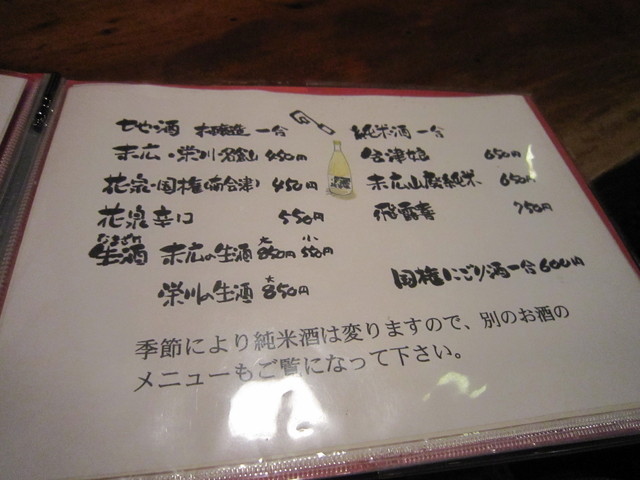 地酒 本醸造 一合
末広・栄川 450円
花泉・国権(南会津) 450円
花泉辛口 550円
なまざけ
生酒 末広の生酒 大850円 小550円
栄川の生酒 大850円
純米酒 一合
会津娘 650円
末広山廃純米 650円
飛露喜 750円
国権にごり酒一合 600円
季節により純米酒は変りますので、別のお酒の
メニューもご覧になって下さい。